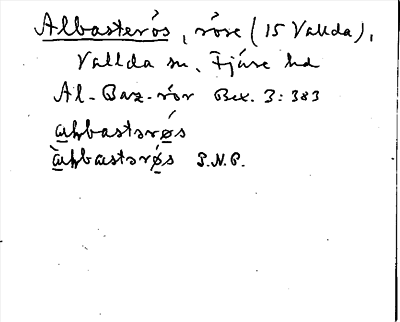 Albasterös, röse (15 Vallda),
Vallda sn, Fjäre hd
Al-Baz-rör Bex. 3:383
aḷbastərøs
àḷbastərø̀s P.N.P.